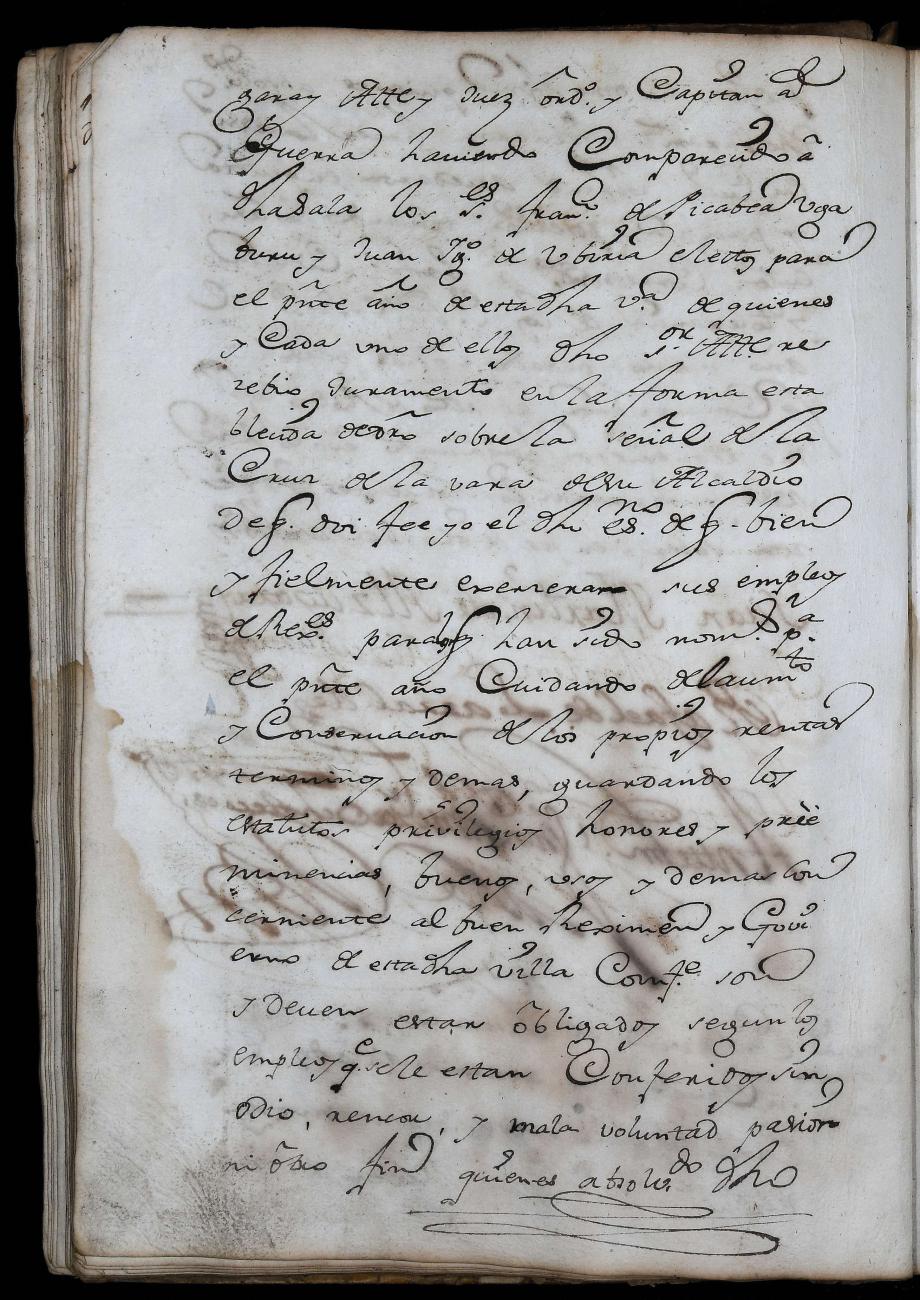 garay Alle y Juez ōrdº. y Capitan aᵈ
Guerra haviendo Comparecido â
dha sala los S.ᵉˢ franᶜᵒ. de Picabea Yga
buru y Juan Ygº. de Vbiria electos para
el pñte año de esta dha vᵃ de quienes
y Cada uno de ellos dho s.ᵒʳ Alle re
zebio Juramento en la forma esta
blecida de dro sobre la señal de la
Cruz de la vara de su Alcaldio
de q. doi fee yo el dho es.ⁿᵒ de q. bien
y fielmente exerceran sus empleos
de Rex.ᵉˢ para los q. han sido nom.ᵈᵒˢ p.ᵃ
el pñte año Cuidando del aumᵗᵒ
y Conservacion de los propios rentas
terminos y demas, guardando los
estatutos privilegios honores y pree
minencias, buenos, usos y demas con
cerniente al buen Reximen y Govi
erno de esta dha villa Comf.ᵉ son
y deven estar ôbligados segun los
empleos q.ᵉ se le estan Conferidos sin
odio, rencor, y mala voluntad pasion
ni ôtro fin quienes absolv.ᵈᵒ dho